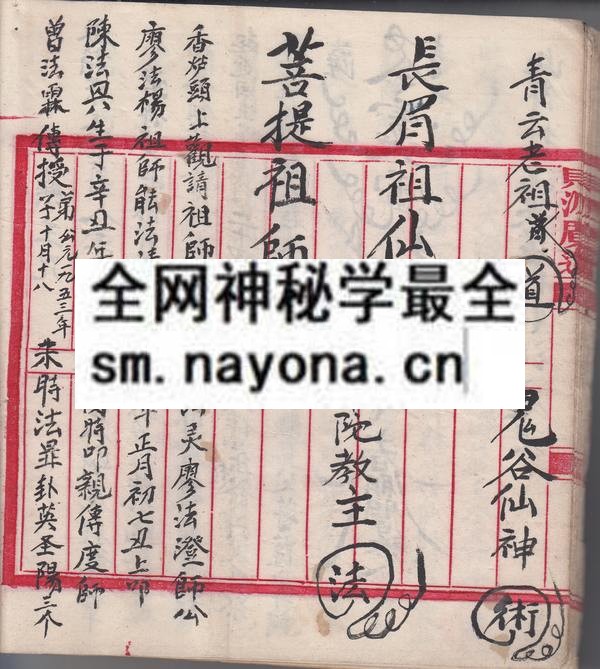 青云老祖 道 鬼谷仙神 術
長眉祖仙
院教主 法
菩提祖師
香炉頭上觀請祖師 灵廖法澄師公
廖法楊祖師能法 年正月初七丑上叩
陳法興生于辛丑 時叩親傳度師
曾法霖傳授第子 公元九五三年十月十八 未時法罡卦英圣陽三个
全网神秘学最全
sm.nayona.cn